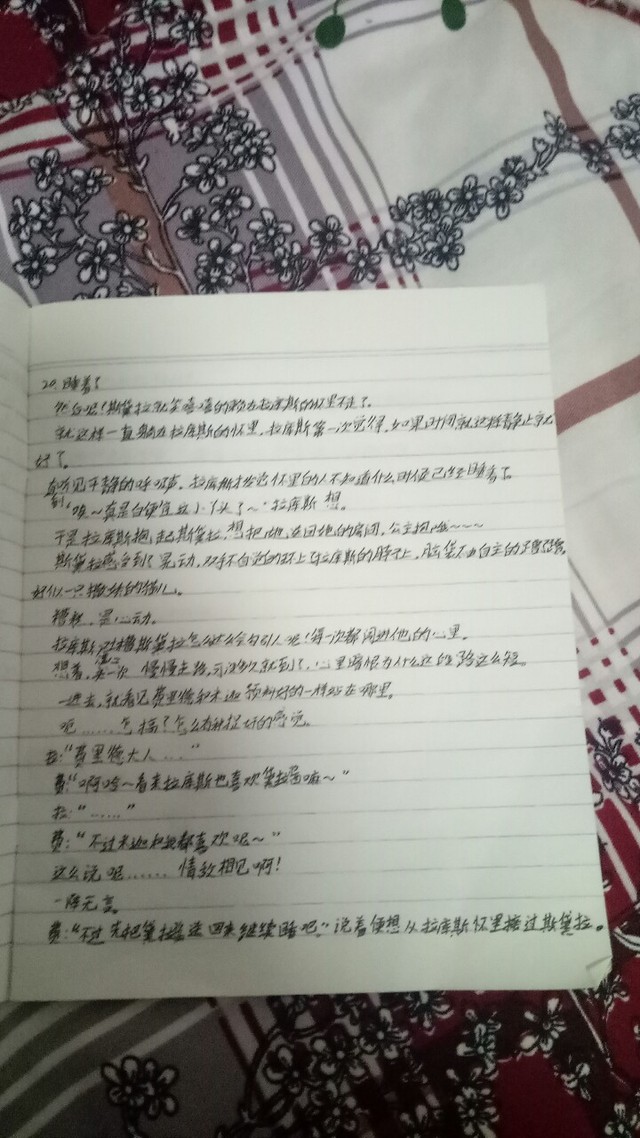 20.睡着了
然后呢！斯黛拉就笑嘻嘻的躺在拉库斯的怀里不走了。
就这样一直躺在拉库斯的怀里，拉库斯第一次觉得，如果时间就这样静止就
好了。
直到听见平静的呼吸声，拉库斯才发觉怀里的人不知道什么时候已经睡着了
"唉～真是白便宜这小丫头了～"拉库斯想。
于是拉库斯抱起斯黛拉，想把她送回她的房间，公主抱哦～～～～
斯黛拉感受到了晃动，双手不自觉的环上了拉库斯的脖子上，脑袋不由自主的
好似一只撒娇的猫儿。
糟糕，是心动。
拉库斯斯黛拉怎么这么会勾引人呢！每一次都闯进他的心里。
想着，第一次慢慢走路，可没多久就到了，心里暗恨为什么这段路这么短。
一进去，就看见费里德和米迦预料好的一样站在哪里。
呃……怎么有种捉奸的感觉。
拉："费里德大人……"
费："啊哈～看来拉库斯也喜欢黛拉酱嘛～"
拉："……"
费："不过米迦和我都喜欢呢～"
这么说呢……情敌相见啊！
一阵无言。
费："不过先把黛拉酱送回来继续睡吧。"说着便想从拉库斯怀里接过斯黛拉。